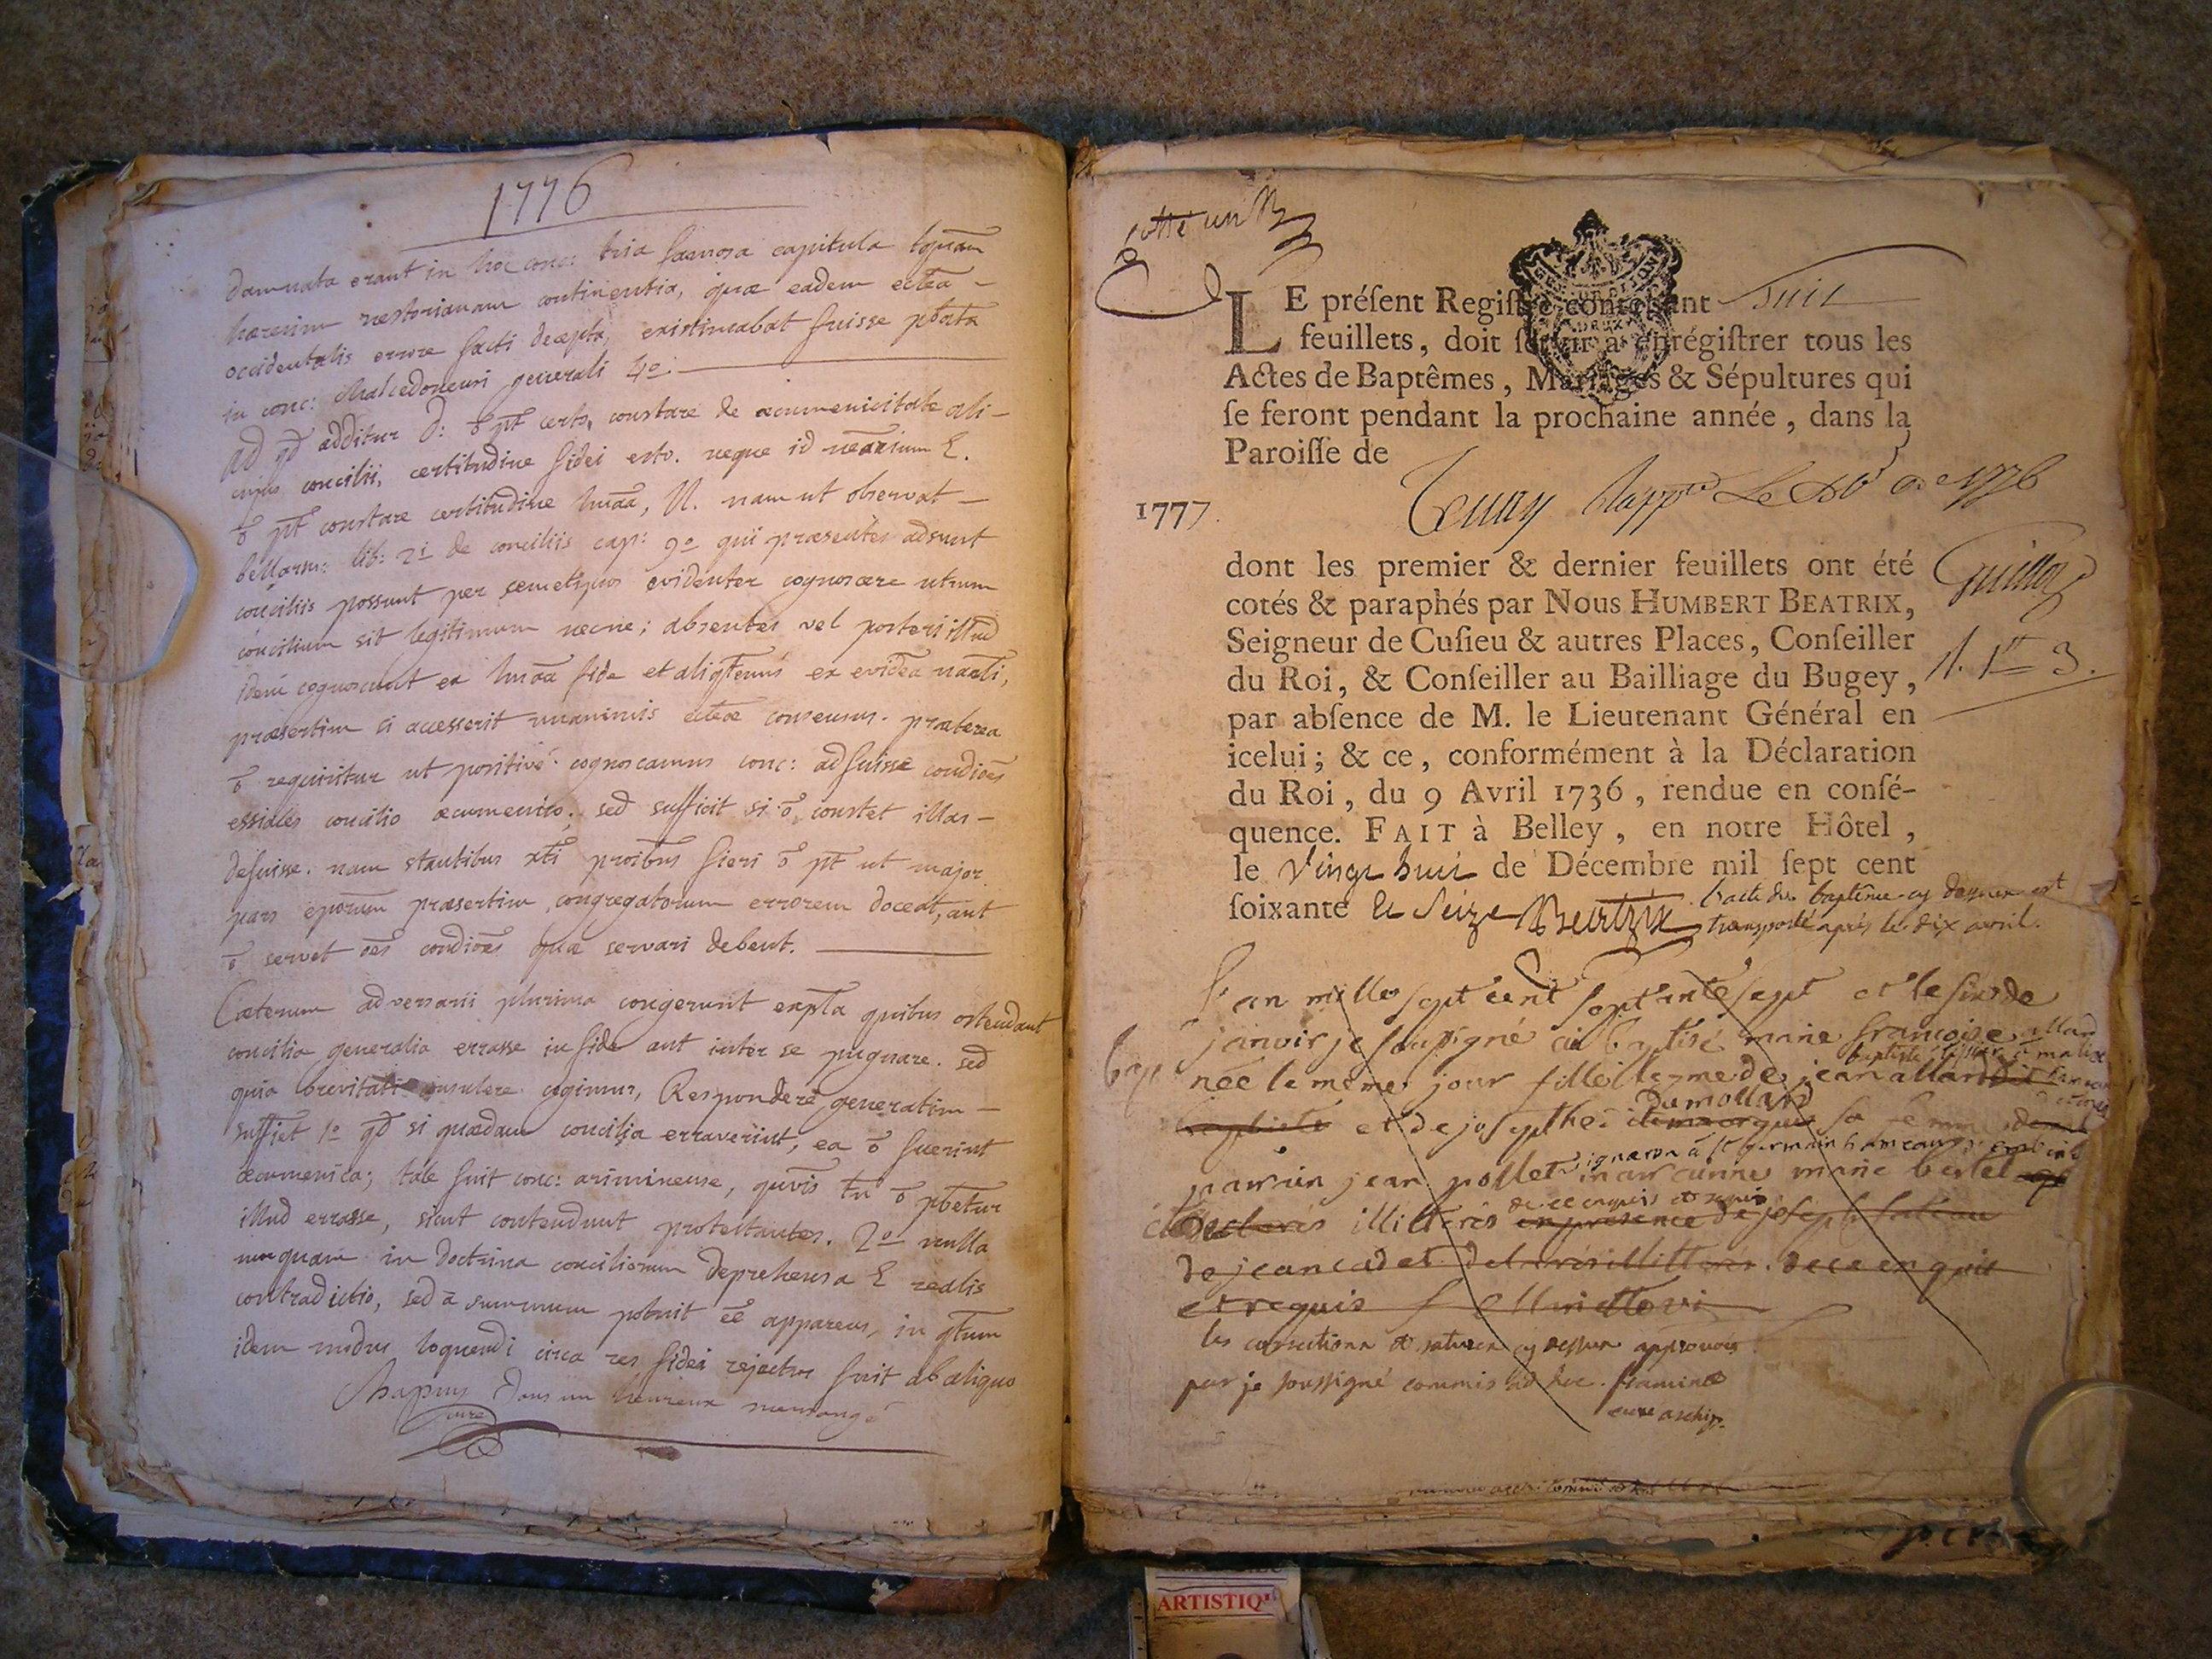 1776
damnata erant in hoc conc: tria famosa capitula tquam
hæresim nestorianam continentia, quæ eadem ectea -
occidentalis errore facti decepta, existimabat fuisse pbata
in conc: Chalcedonensi generali 4o.
Ad qd additur D: õ pt certo constare de œcumenicitate ali-
cujus concilii, certitudine fidei esto. neque id nearium E.
õ pt constare certitudine hmãa, N. nam ut observat -
bellarm: lib: 2i de conciliis cap: 9o qui præsentes adsunt
conciliis possunt per semetipsos evidenter cognoscere utrum
concilium sit legitimum necne; absentes vel posteri illud
idem cognoscunt ex hmãa fide et
præsertim si accesserit unanimis ecteæ consensus. præterea
õ requiritur ut positivé cognoscamus conc: adfuisse condiões
essiales concilio œcumenico; sed sufficit si õ constet illas-
defuisse. nam stantibus xti proibus fieri õ pt ut major
pars eporum præsertim congregatorum errorem doceat, aut
õ servet oes condiões quæ servari debent.
Cæterum adversarii plurima congerunt expla quibus ostendant
concilia generalia errasse in fide aut inter se pugnare. sed
quia brevitati consulere cogimur, Respondere generatim -
sufficiet 1o qd si quædam concilia erraverint, ea õ fuerint
œcumenica; tale fuit conc: ariminense, quvis tn õ pbetur
illud errasse, sicut contendunt protestantes. 2o nulla
unquam in doctrina conciliorum deprehensa E realis
contradictio, sed ã summum potuit eē apparens, in qtum
idem modus loquendi circa res fidei rejectus fuit ab aliquo
Chapuy Dans un heureux
curé
cotté un
LE préſent Regiſtre contenant huit
feuillets, doit ſervir à enrégiſtrer tous les
Actes de Baptêmes, Mariages & Sépultures qui
ſe feront pendant la prochaine année, dans la
Paroiſſe de
1777 Tenay Rapp.té Le 1776
dont les premier & dernier feuillets ont été
cotés & paraphés par Nous HUMBERT BEATRIX,
Seigneur de Cuſieu & autres Places, Conſeiller
du Roi, & Conſeiller au Bailliage du Bugey,
par abſence de M. le Lieutenant Général en
icelui; & ce, conformément à la Déclaration
du Roi, du 9 Avril 1736, rendue en conſé-
quence. FAIT à Belley, en notre Hôtel,
le vingt huit de Décembre mil ſept cent
ſoixante et Seize Beatrix
l'acte du baptême cy dessus est
transporté après le dix avril.
L'an mille sept cent septante sept et le six de
janvir je soussigné ai baptisé marie françoise allard
bap née le même jour fille de jean allard
baptiste et de josepthe dumollard sa femme
parrain jean pollet marainne marie bertel
illitterés de ce enquis et requis en presence de joseph
de jean cadet illitterés de ce enquis
et requis
les corrections et ratures cy dessus approuvées
par je soussigné commis ad hoc.
curé archip.
ARTISTIQ